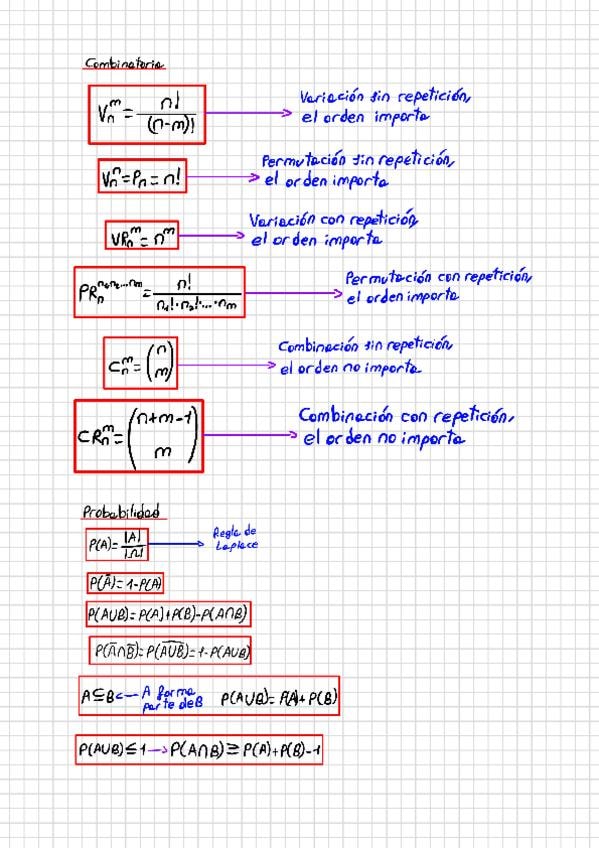 Combinatoria
V_n^m = n! / (n-m)!
Variación sin repetición,
el orden importa
V_n^n = P_n = n!
Permutación sin repetición,
el orden importa
VR_n^m = n^m
Variación con repetición,
el orden importa
PR_n^{n_1, n_2, ... n_m} = n! / n_1! · n_2! · ... · n_m
Permutación con repetición,
el orden importa
C_n^m = (n m)
Combinación sin repetición,
el orden no importa
CR_n^m = (n+m-1 m)
Combinación con repetición,
el orden no importa
Probabilidad
P(A) = |A| / |Ω|
Regla de
Laplace
P(Ā) = 1 - P(A)
P(A∪B) = P(A) + P(B) - P(A∩B)
P(Ā∩B̄) = P(A̅∪̅B̅) = 1 - P(A∪B)
A⊆B ← A forma
parte de B
P(A∪B) = P(A) + P(B)
P(A∪B) ≤ 1 → P(A∩B) ≥ P(A) + P(B) - 1